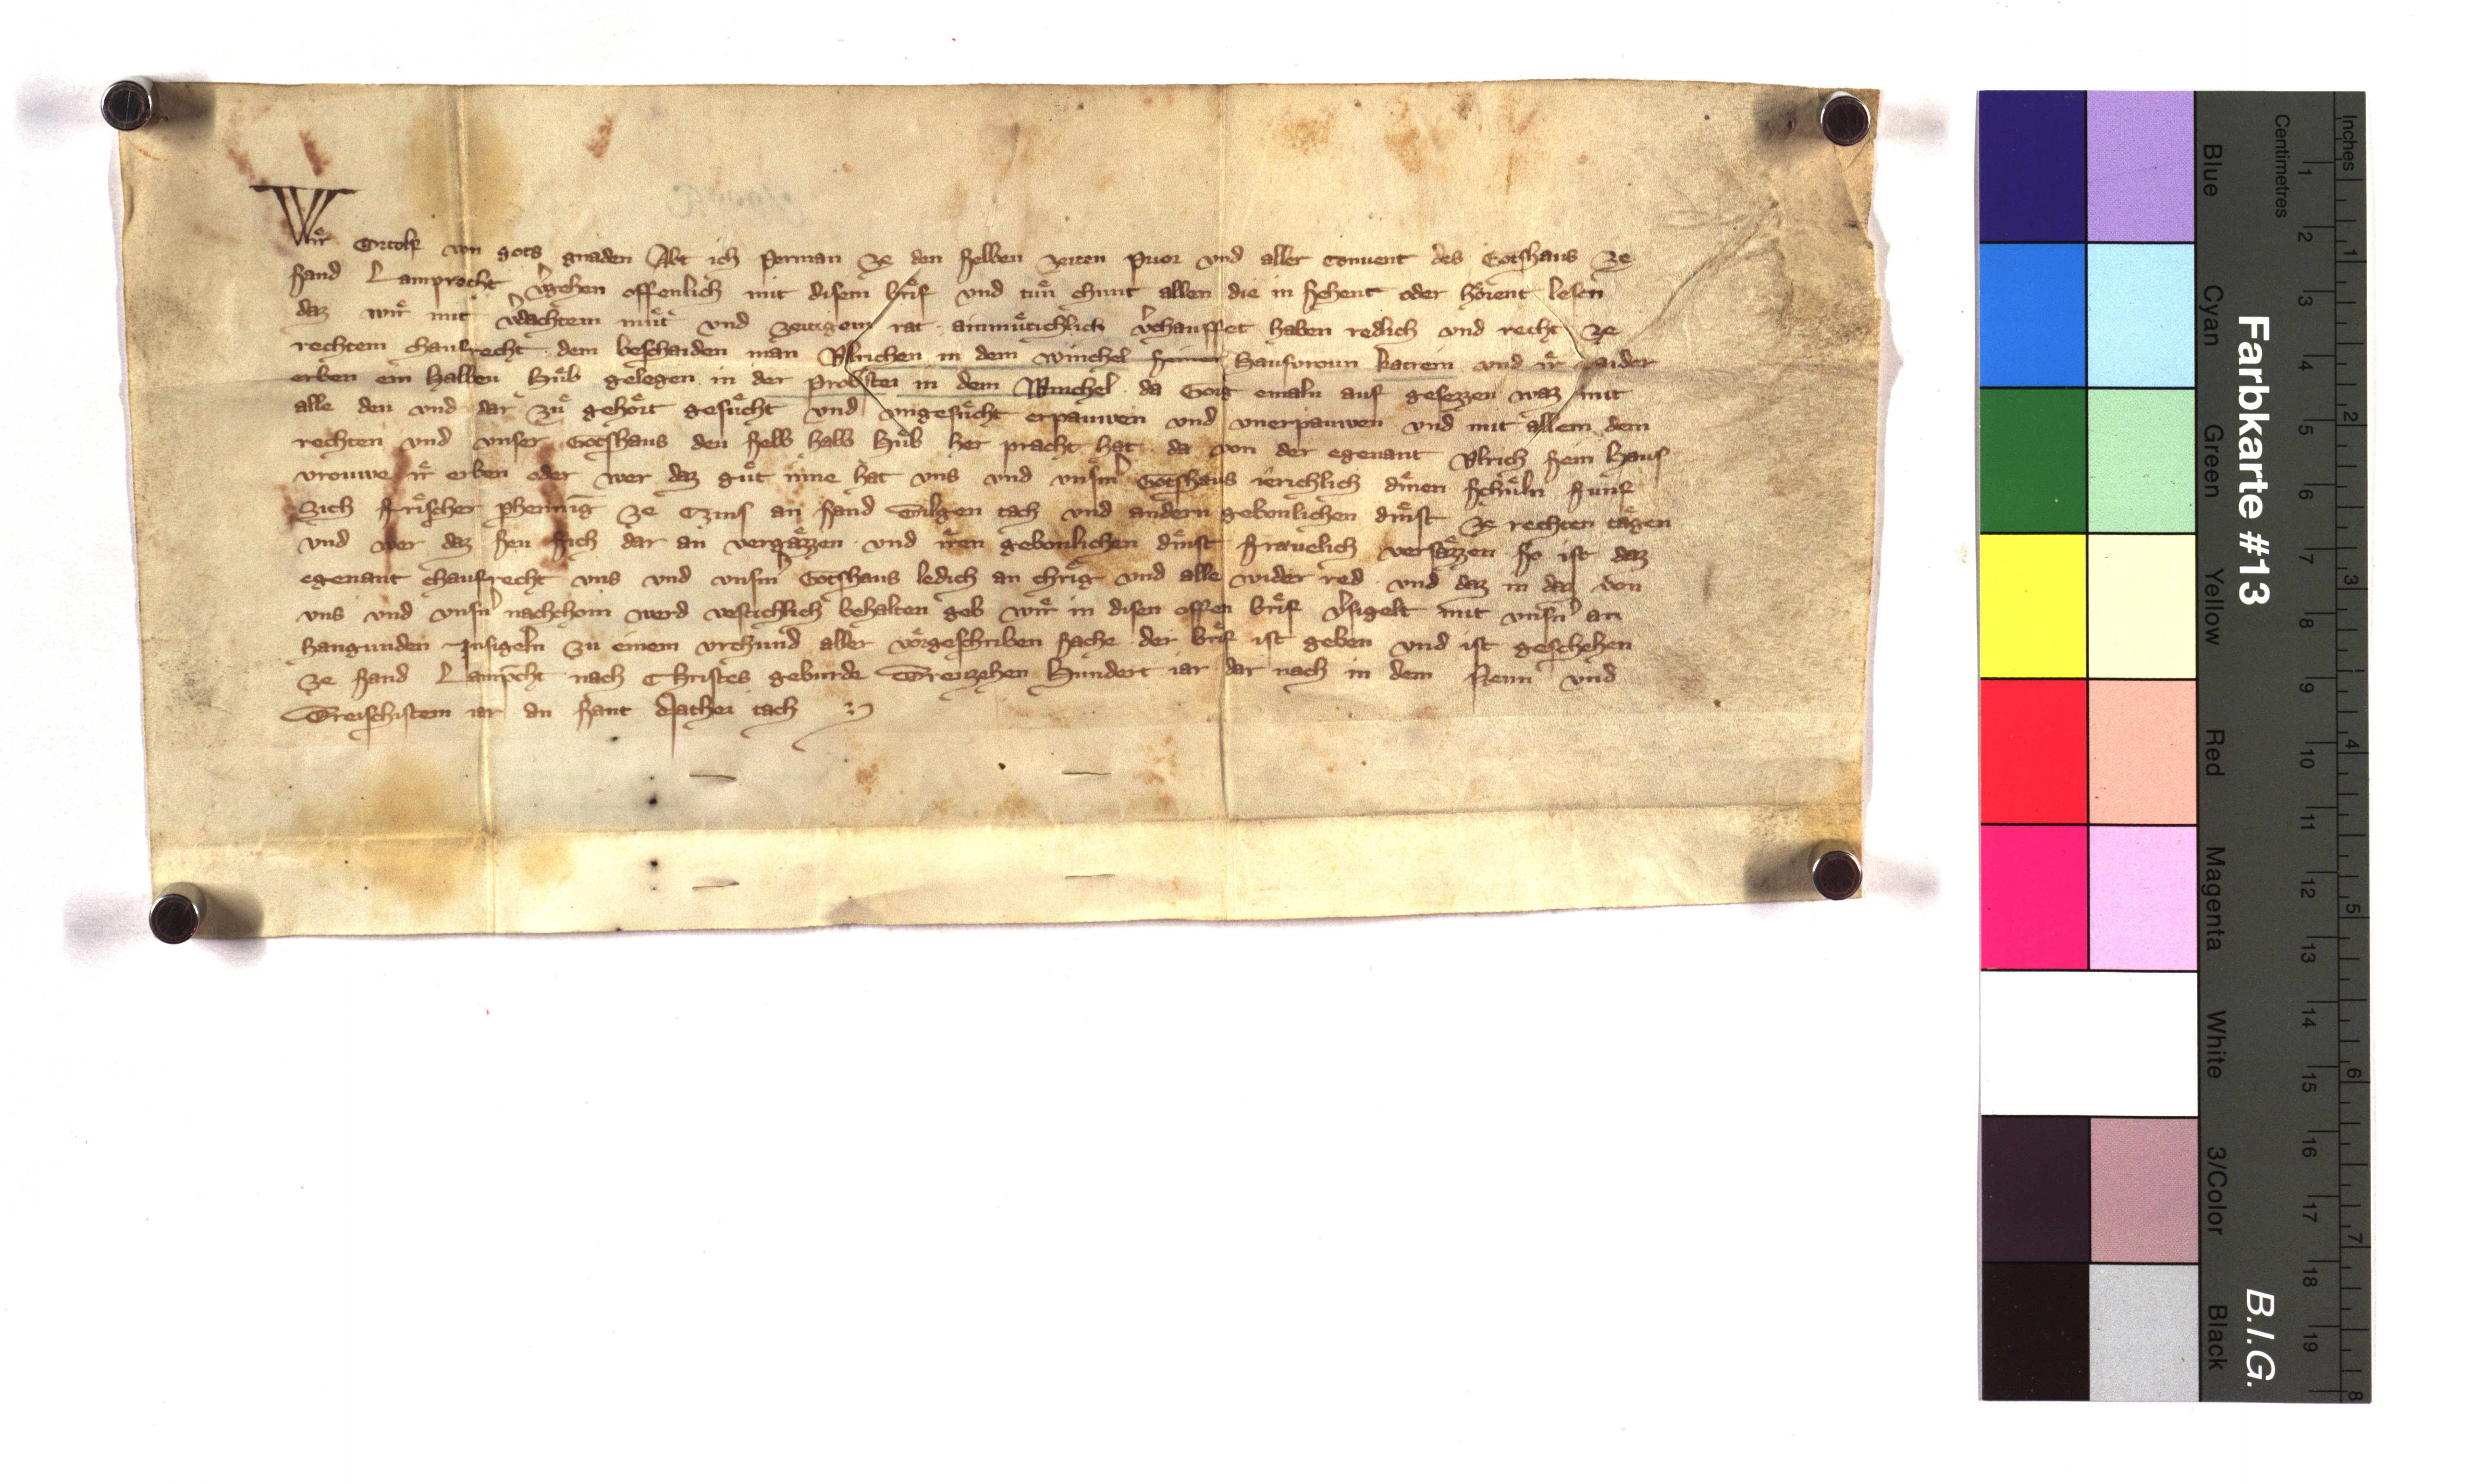 Wir Ortolf von gots gnaden Abt ich Perman ze den selben zeiten Prior vnd aller Conuent des Gotshaus ze
sand Lamprecht v̓gehen offenlich mit disem brif vnd tun chunt allen die in sehent oder hörent lesen
daz wir mit v̓dachtem mut vnd zeitigem rat ainmutichlich v̓chauffet haben redlich vnd recht ze
rechtem chaufrecht dem beschaiden man Vlrichen in dem winchel seiner Hausvroun katrein vnd ir paider
erben ein halben Hub gelegen in der Probstei in dem Winchel da Gorg emaln auf gesezzen waz mit
alle den vnd dar zu gehort gesucht vnd vngesucht erpauwen vnd vnerpauwen vnd mit allem dem
rechten vnd vnser Gotshaus den selb halb Hub her pracht hat da von der egenant Vlrich sein Haus
vrouwe ir erben oder wer daz gut inne hat vns vnd vnsm̓ Gotshaus ierichlich dinen schuln funf
Sich frischer phenning ze Czins an sand Gilgen tach vnd andern gebonlichen dinst ze rechten tagen
vnd wer daz seu sich dar an vergazzen vnd iren gebonlichen dinst frauelich versazzen so ist daz
egenant chaufrecht vns vnd vnsm̓ Gotshaus ledich an chrig vnd alle wider red vnd daz in daz von
vns vnd vnsn̓ nachchom werd vestichlich behalten geb wir in disen offen brif v̓sigelt mit vnsn̓ an
hangunden Insigeln zu einem vrchund aller vorgeschriben sache der brif ist geben vnd ist geschehen
ze sand Lamp̄cht nach Christes geburde Dreuzehen Hundert iar dar nach in dem Neun vnd
Dreischistem iar an sant Mathei tach
Farbkarte #13
B.I.G.
Blue
Cyan
Green
Yellow
Red
Magenta
White
3/Color
Black
Centimetres
Inches
1 2 3 4 5 6 7 8 9 10 11 12 13 14 15 16 17 18 19
1 2 3 4 5 6 7 8